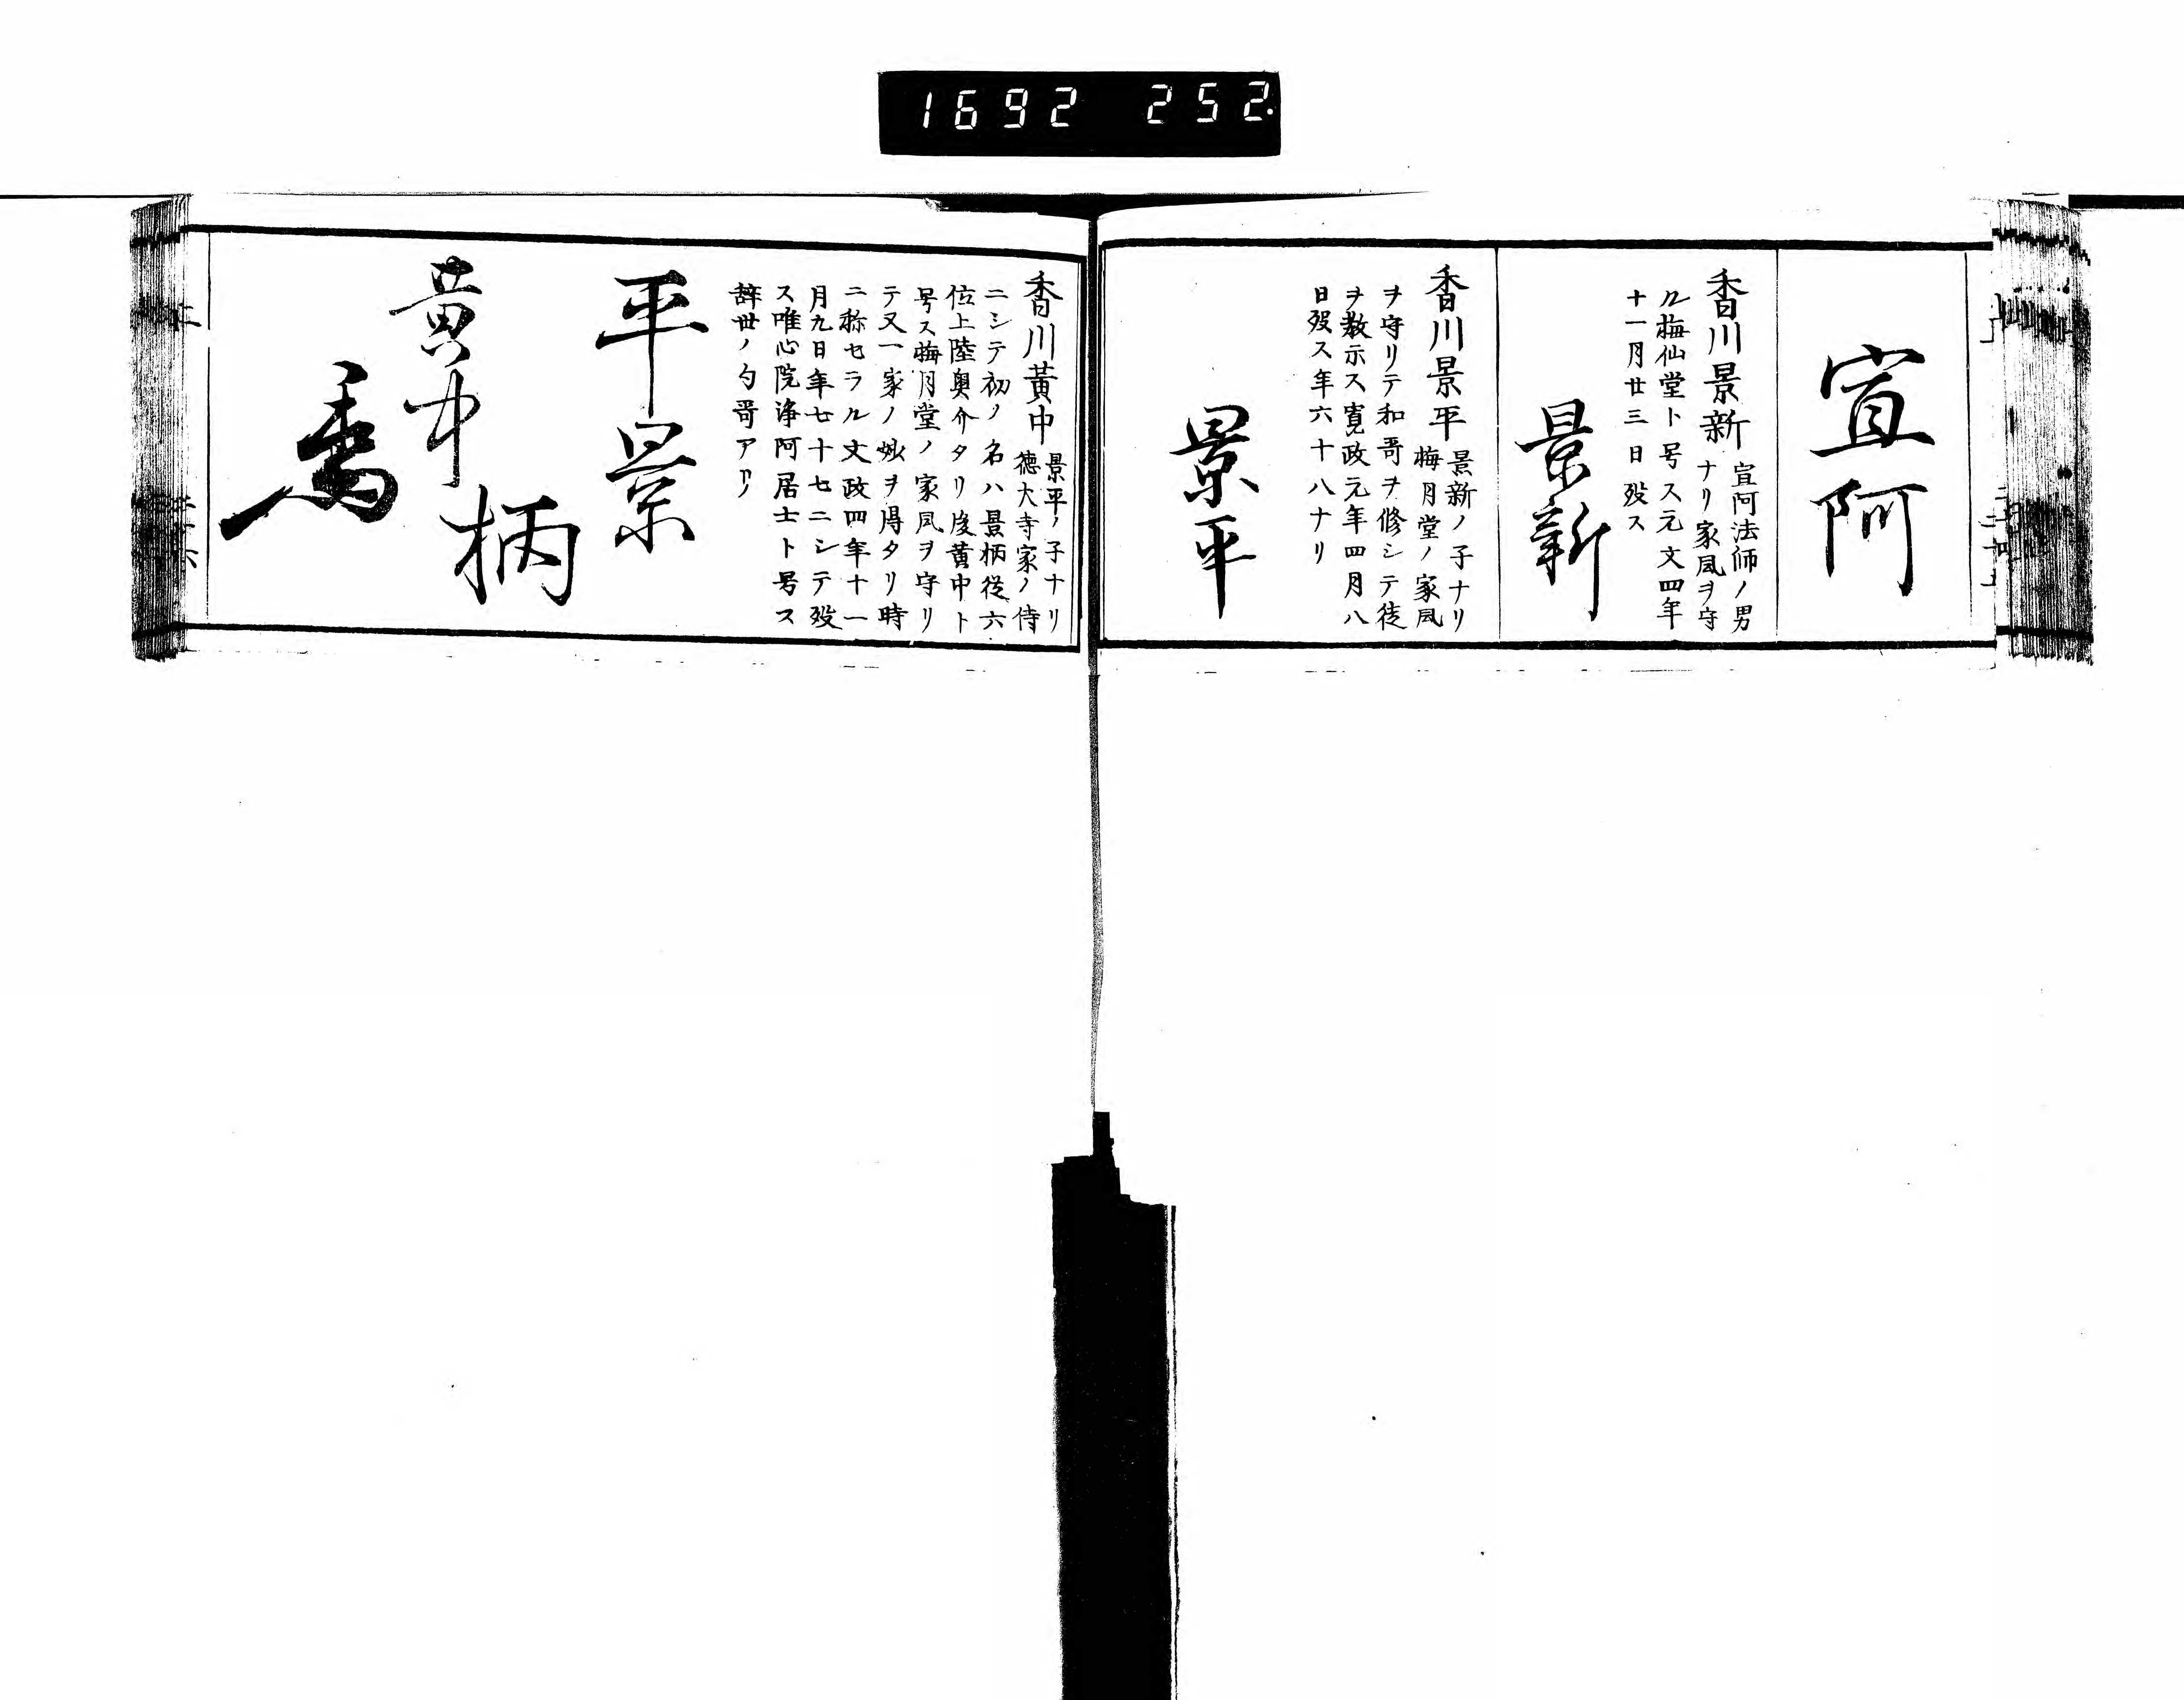 1692 252
宣阿
香川景新 宣阿法師ノ男
ナリ家風ヲ守
ル梅仙堂ト号ス元文四年
十一月廿三日歿ス
景新
香川景平 景新ノ子ナリ
梅月堂ノ家風
ヲ守リテ和哥ヲ修シテ徒
ヲ教示ス寛政元年四月八
日歿ス年六十八ナリ
景平
香川黄中 景平ノ子ナリ
徳大寺家ノ侍
ニシテ初ノ名ハ景柄従六
位上陸奥介タリ後黄中ト
号ス梅月堂ノ家風ヲ守リ
テ又一家ノ妙ヲ得タリ時
ニ称セラル文政四年十一
月九日年七十七ニシテ歿
ス唯心院浄阿居士ト号ス
辞世ノ句哥アリ
平景
柄
黄中